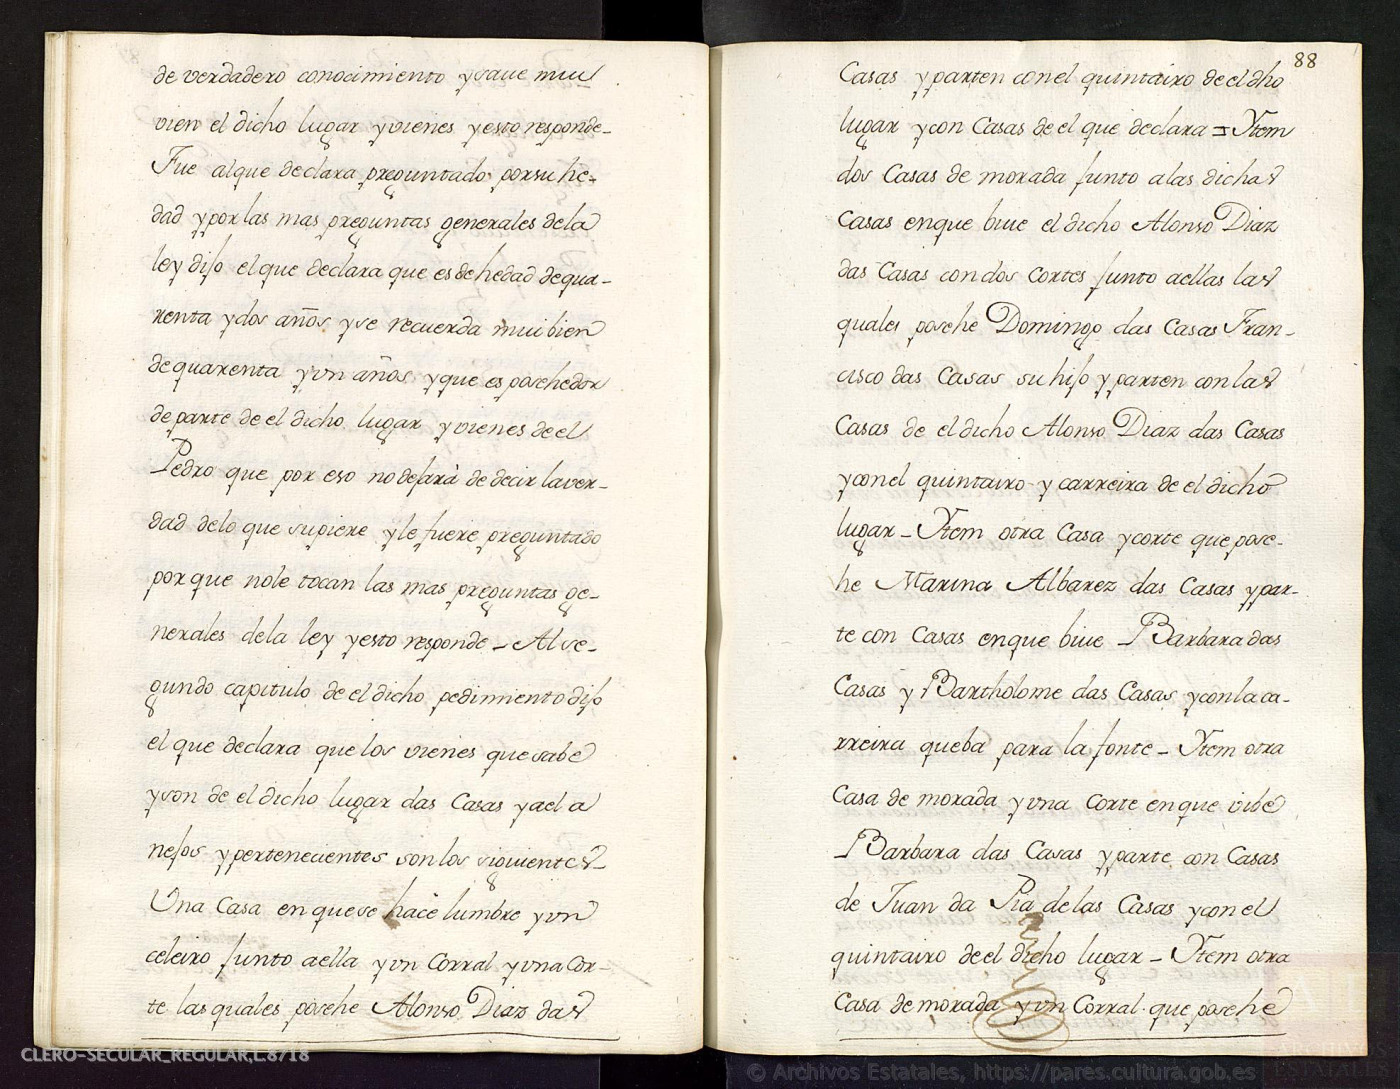 de verdadero conocimiento ysaue mui
vien el dicho lugar yvienes yesto responde-
Fue alque declara preguntado porsu he-
dad yporlas mas preguntas generales dela
ley dijo el que declara que es de hedad dequa-
renta ydos años yse recuerda mui bien
de quarenta yvn años yque es posehedor
de parte de el dicho lugar yvienes de el
Pedro que por eso no dejará de decir laver-
dad delo que supiere yle fuere preguntado
por que nole tocan las mas preguntas ge-
nerales dela ley yesto responde - Al se-
gundo capitulo de el dicho pedimiento dijo
el que declara que los vienes que sabe
yson de el dicho lugar das Casas yael a
nejos ypertenecientes son los siguientes-
Una Casa en quese hace lumbre yvn
celeiro junto aella yvn Corral yvna Cor-
te las quales posehe Alonso Diaz das
88
Casas yparten conel quintairo de el dho
lugar ycon Casas de el que declara = Ytem
dos Casas de morada junto alas dichas
Casas enque biue el dicho Alonso Diaz
das Casas con dos Cortes junto aellas las
quales posehe Domingo das Casas Fran-
cisco das Casas su hijo yparten con las
Casas de el dicho Alonso Diaz das Casas
yconel quintairo y carreira de el dicho
lugar - Ytem otra Casa ycorte que pose-
he Marina Albarez das Casas ypar-
te con Casas enque biue Barbara das
Casas y Bartholome das Casas yconla ca-
rreira queba para la fonte - Ytem otra
Casa de morada yvna Corte en que vibe
Barbara das Casas yparte con Casas
de Juan da Pia de las Casas yconel
quintairo deel dicho lugar - Ytem otra
Casa de morada yvn Corral que posehe
CLERO-SECULAR_REGULAR,L.8718
© Archivos Estatales, https://pares.cultura.gob.es
ARCHIVOS
ESTATALES